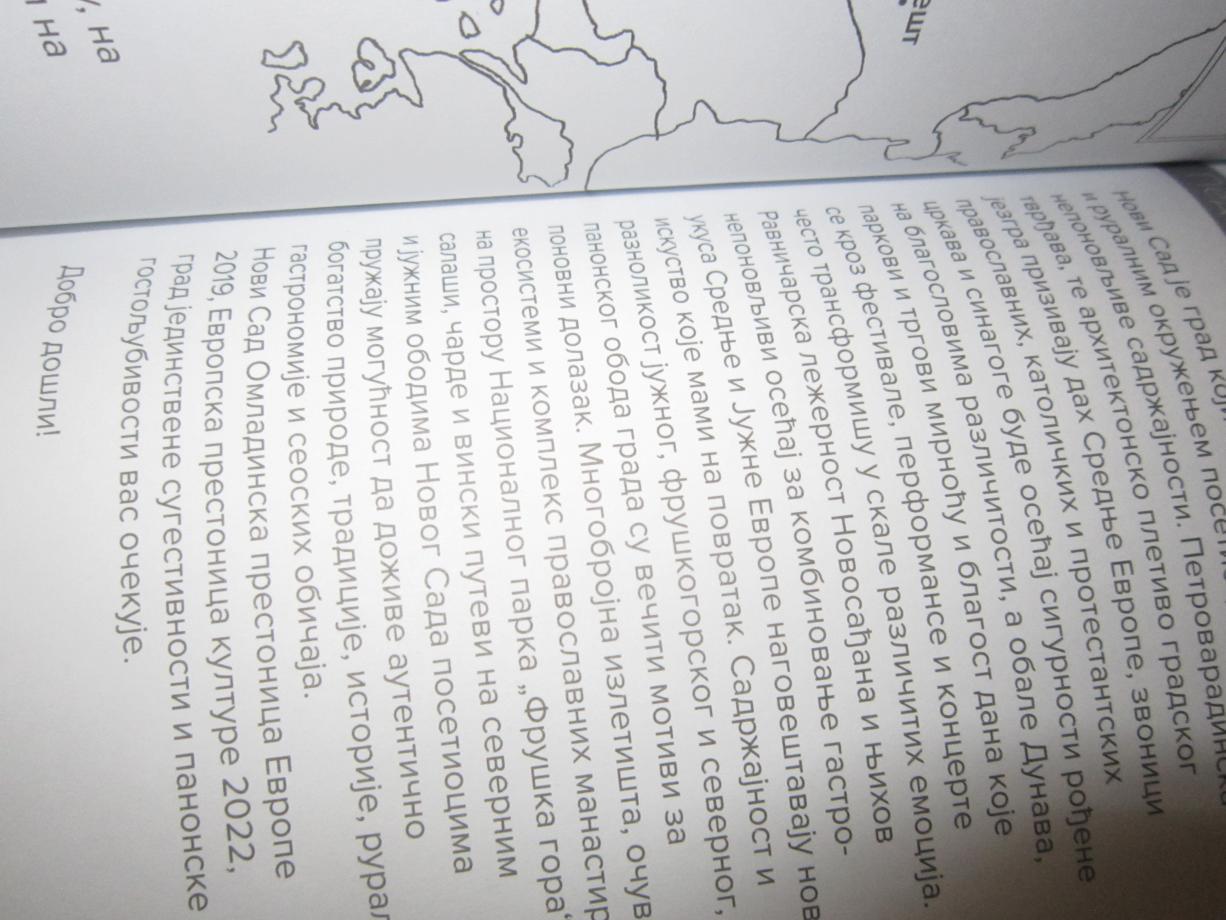 ешт
, на
на
Нови Сад је град који
и руралним окружењем
неponовљиве садржајности. Петроварадинска
тврђава, те архитектонско плетиво градског
језгра призивају дах Средње Европе, звоници
православних, католичких и протестантских
цркава и синагоге буде осећај сигурности рођене
на благословима различитости, а обале Дунава,
паркови и тргови мирноћу и благост дана које
се кроз фестивале, перформансе и концерте
често трансформишу у скале различитих емоција.
Равничарска лежерност Новосађана и њихов
непоновљиви осећај за комбиновање гастро-
укуса Средње и Јужне Европе наговештавају нов
искуство које мами на повратак. Садржајност и
разноликост јужног, фрушкогорског и северног,
панонског обода града су вечити мотиви за
поновни долазак. Многобројна излетишта, очув
екосистеми и комплекс православних манастир
на простору Националног парка „Фрушка гора“
салаши, чарде и вински путеви на северним
и јужним ободима Новог Сада посетиоцима
пружају могућност да доживе аутентично
богатство природе, традиције, историје, рурал
гастрономије и сеоских обичаја.
Нови Сад Омладинска престоница Европе
2019, Европска престоница културе 2022,
град јединствене сугестивности и панонске
гостољубивости вас очекује.
Добро дошли!